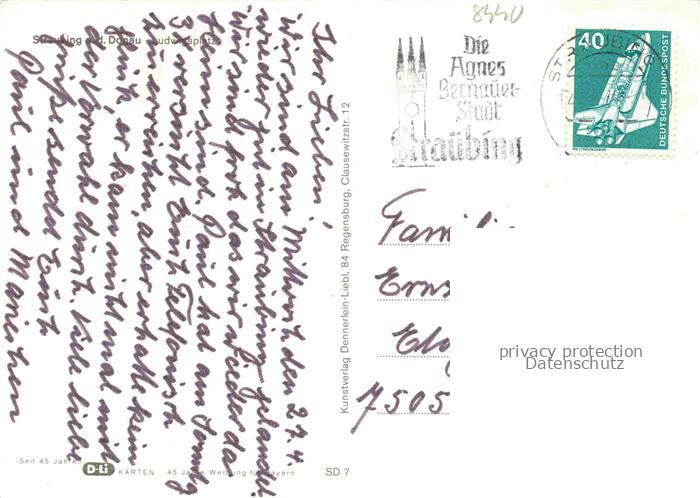 8440
Straubing a. d. Donau - Ludwigsplatz
Ihr Lieben!
Wir sind am Mittwoch den 27.4.
wieder gut in Straubing gelandet.
Wir sind froh das wir wieder da-
heim sind. Paul hat am Sonntag
3 x versucht Euch Telefonisch
zu erreichen, aber er hatte kein
Glück er kam nicht mal mit
der Vorwahl durch. Viele liebe
Grüße sendet Euch
Paul und Mariechen
Seit 45 Jahren
D-Li KARTEN 45 Jahre Werbung für Bayern
SD 7
Kunstverlag Dennerlein-Liebl, 84 Regensburg, Clausewitzstr. 12
Die
Agnes
Bernauer-
Stadt
Straubing
STRAUBING
40
DEUTSCHE BUNDESPOST
WELTRAUMLABOR
Famili
Erns
7505
privacy protection
Datenschutz